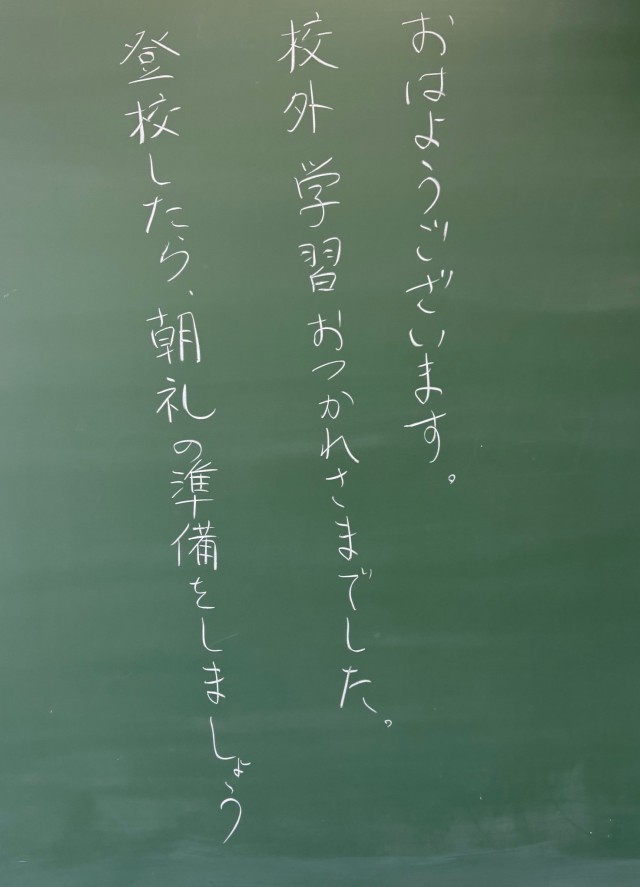 おはようございます。
校外学習おつかれさまでした。
登校したら、朝礼の準備をしましょう